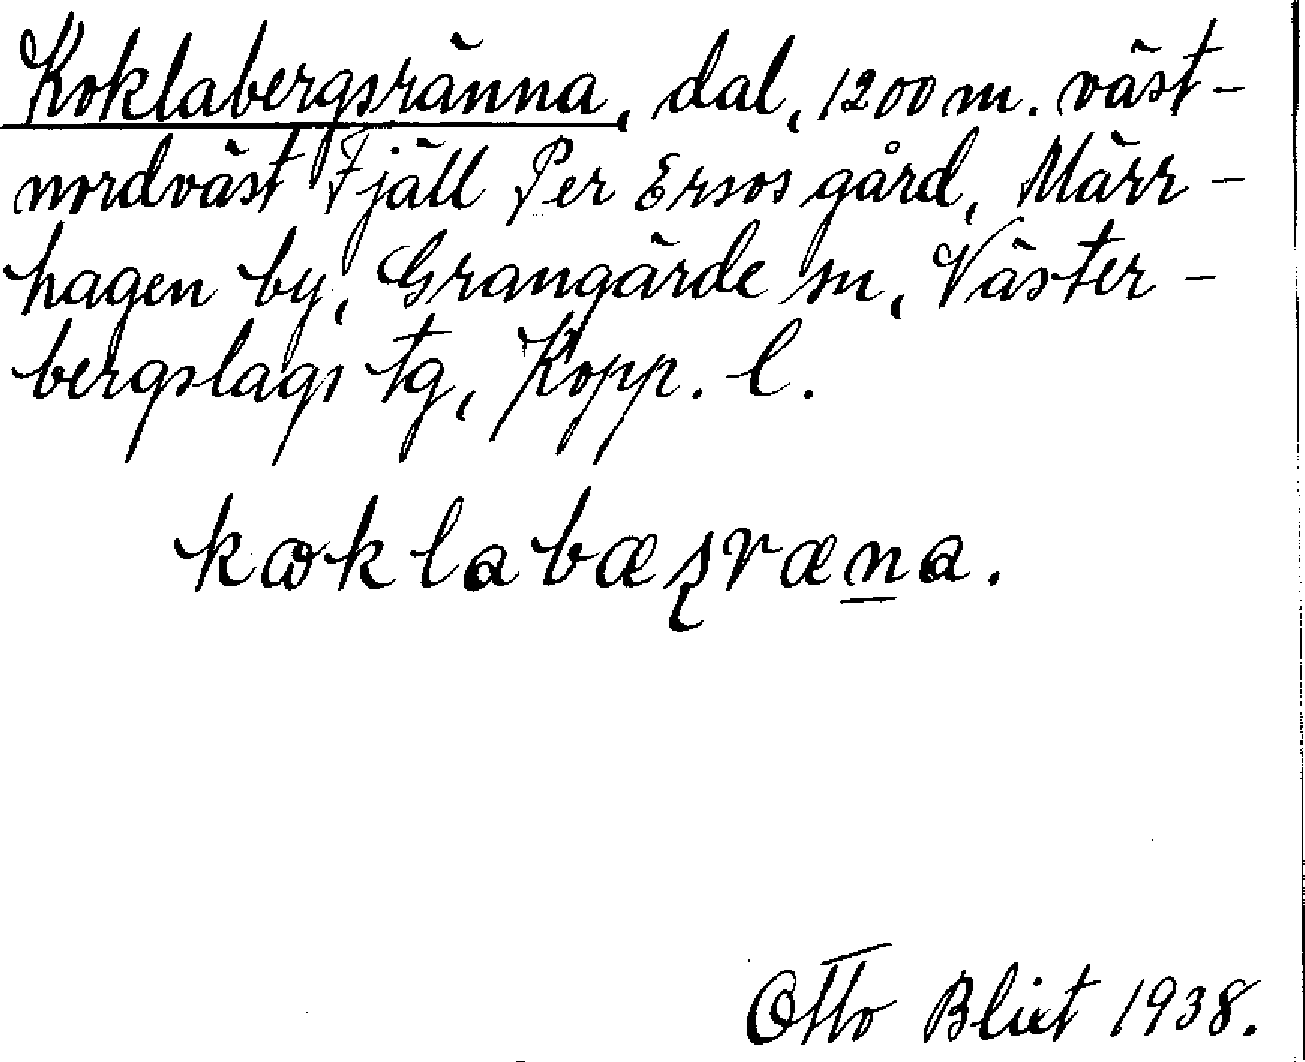 Koklabergsränna, dal, 1200 m. väst-
nordväst Fjäll Per Ersos gård, Märr-
hagen by, Grangärde sn, Väster-
bergslags tg, Kopp. l.
kɷklabæʂræn̲a.
Otto Blixt 1938.